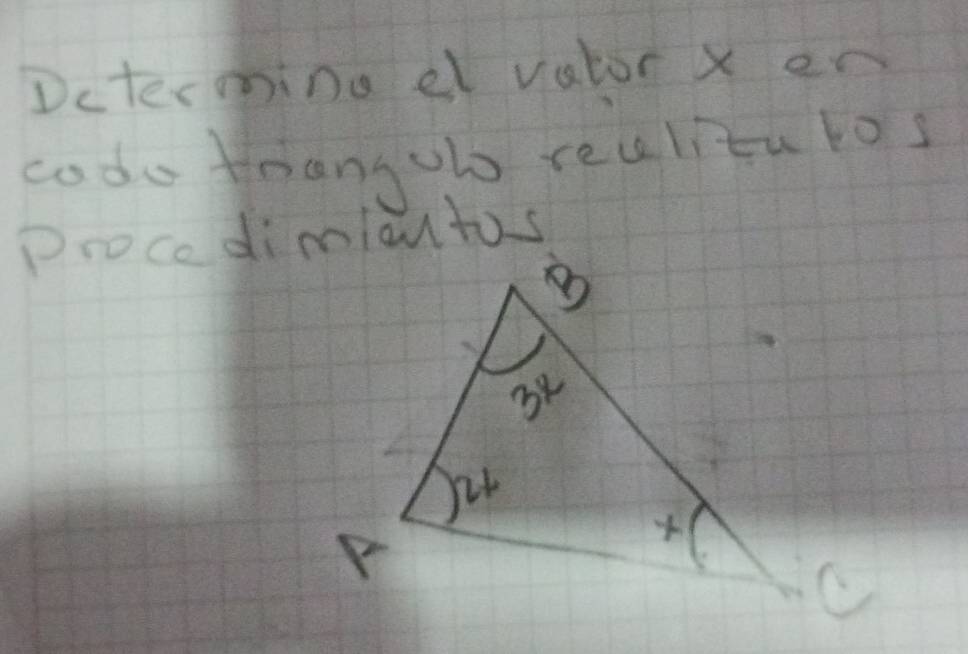 Determina el valor x en
cada triangulo realiza los
procedimientos
B
3x
2x
x
A
C